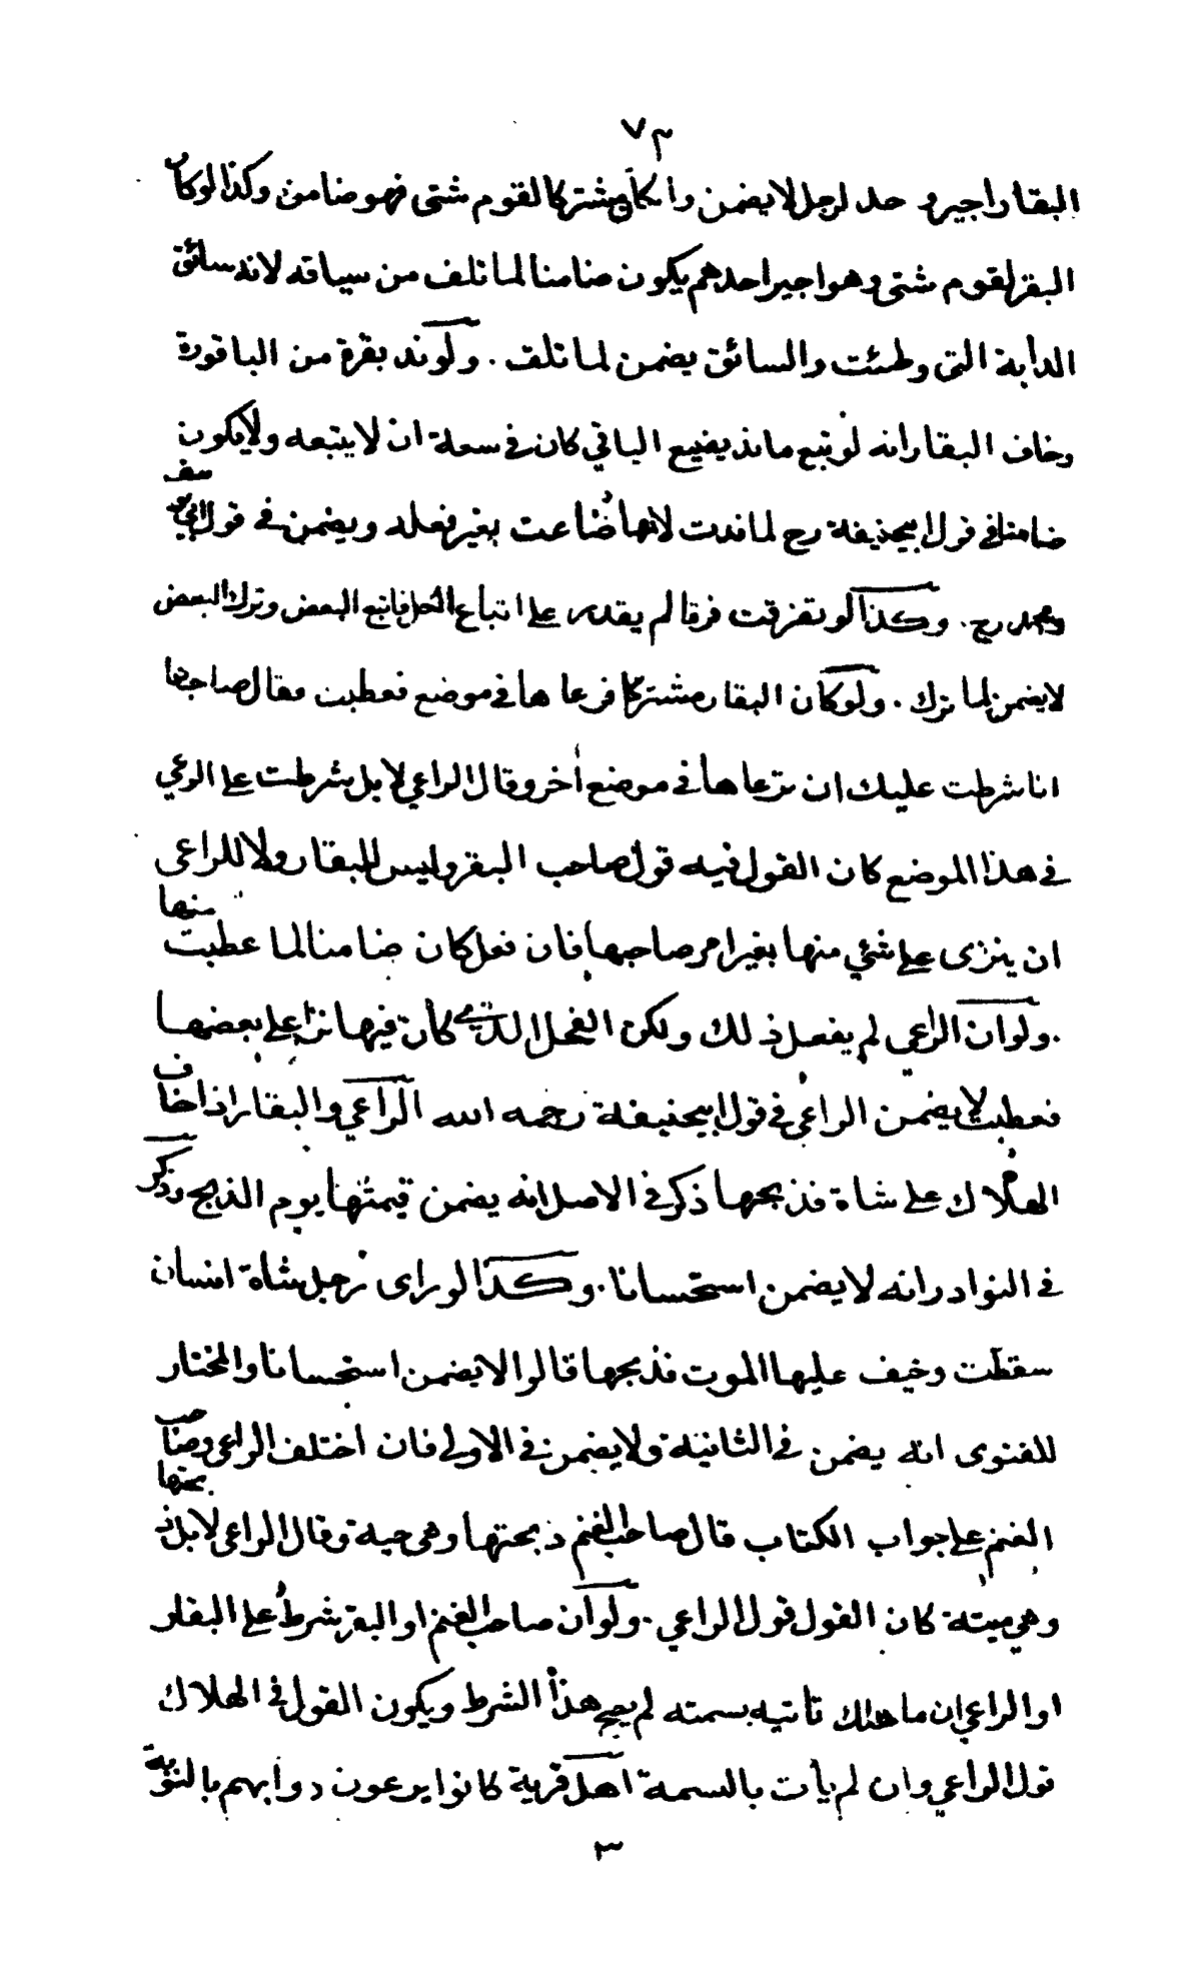 ٧٣
البقار اجير وحد لرجل لا يضمن وان كان مشتركا لقوم شتى فهو ضامن وكذا لو كان
البقر لقوم شتى وهو اجير احدهم يكون ضامنا لما تلف من سياقه لانه سائق
الدابة التى وطئت والسائق يضمن لما تلف . ولو ند بقرة من الباقورة
وخاف البقار انه لو يتبع ما ند يضيع الباقي كان في سعة ان لا يتبعه ولا يكون
ضامنا في قول ابيحنيفة رح لما ندت لانها ضاعت بغير فعله ويضمن في قول ابي يوسف
ومحمد رح . وكذا لو تفرقت فرقا لم يقدر على اتباع الكل فاتبع البعض وترك البعض
لا يضمن لما ترك . ولو كان البقار مشتركا فرعاها في موضع فعطبت فقال صاحبها
انا شرطت عليك ان ترعاها في موضع أخر وقال الراعي لا بل شرطت على الرعي
في هذا الموضع كان القول فيه قول صاحب البقر وليس للبقار ولا للراعى
ان ينزى على شئ منها بغير امر صاحبها فان فعل كان ضامنا لما عطبت منها
. ولو ان الراعي لم يفعل ذلك ولكن الفحل الذي كان فيها نزا على بعضها
فعطبت لا يضمن الراعي في قول ابيحنيفة رحمه الله الراعي والبقار اذا خاف
الهلاك على شاة فذبحها ذكر في الاصل انه يضمن قيمتها يوم الذبح وذكر
في النوادر انه لا يضمن استحسانا . وكذا لو راى رجل شاة انسان
سقطت وخيف عليها الموت فذبحها قالوا لا يضمن استحسانا والمختار
للفتوى انه يضمن في الثانية ولا يضمن في الاولى فان اختلف الراعى وصاحب
الغنم على جواب الكتاب قال صاحب الغنم ذبحتها وهى حية وقال الراعى لا بل ذبحتها
وهي ميتة كان القول قول الراعي . ولو ان صاحب الغنم او البقر شرط على البقار
او الراعي ان ما هلك تاتيه بسمته لم يصح هذا الشرط ويكون القول في الهلاك
قول الراعي وان لم يأت بالسمة اهل قرية كانوا يرعون دوابهم بالنوبة
٣